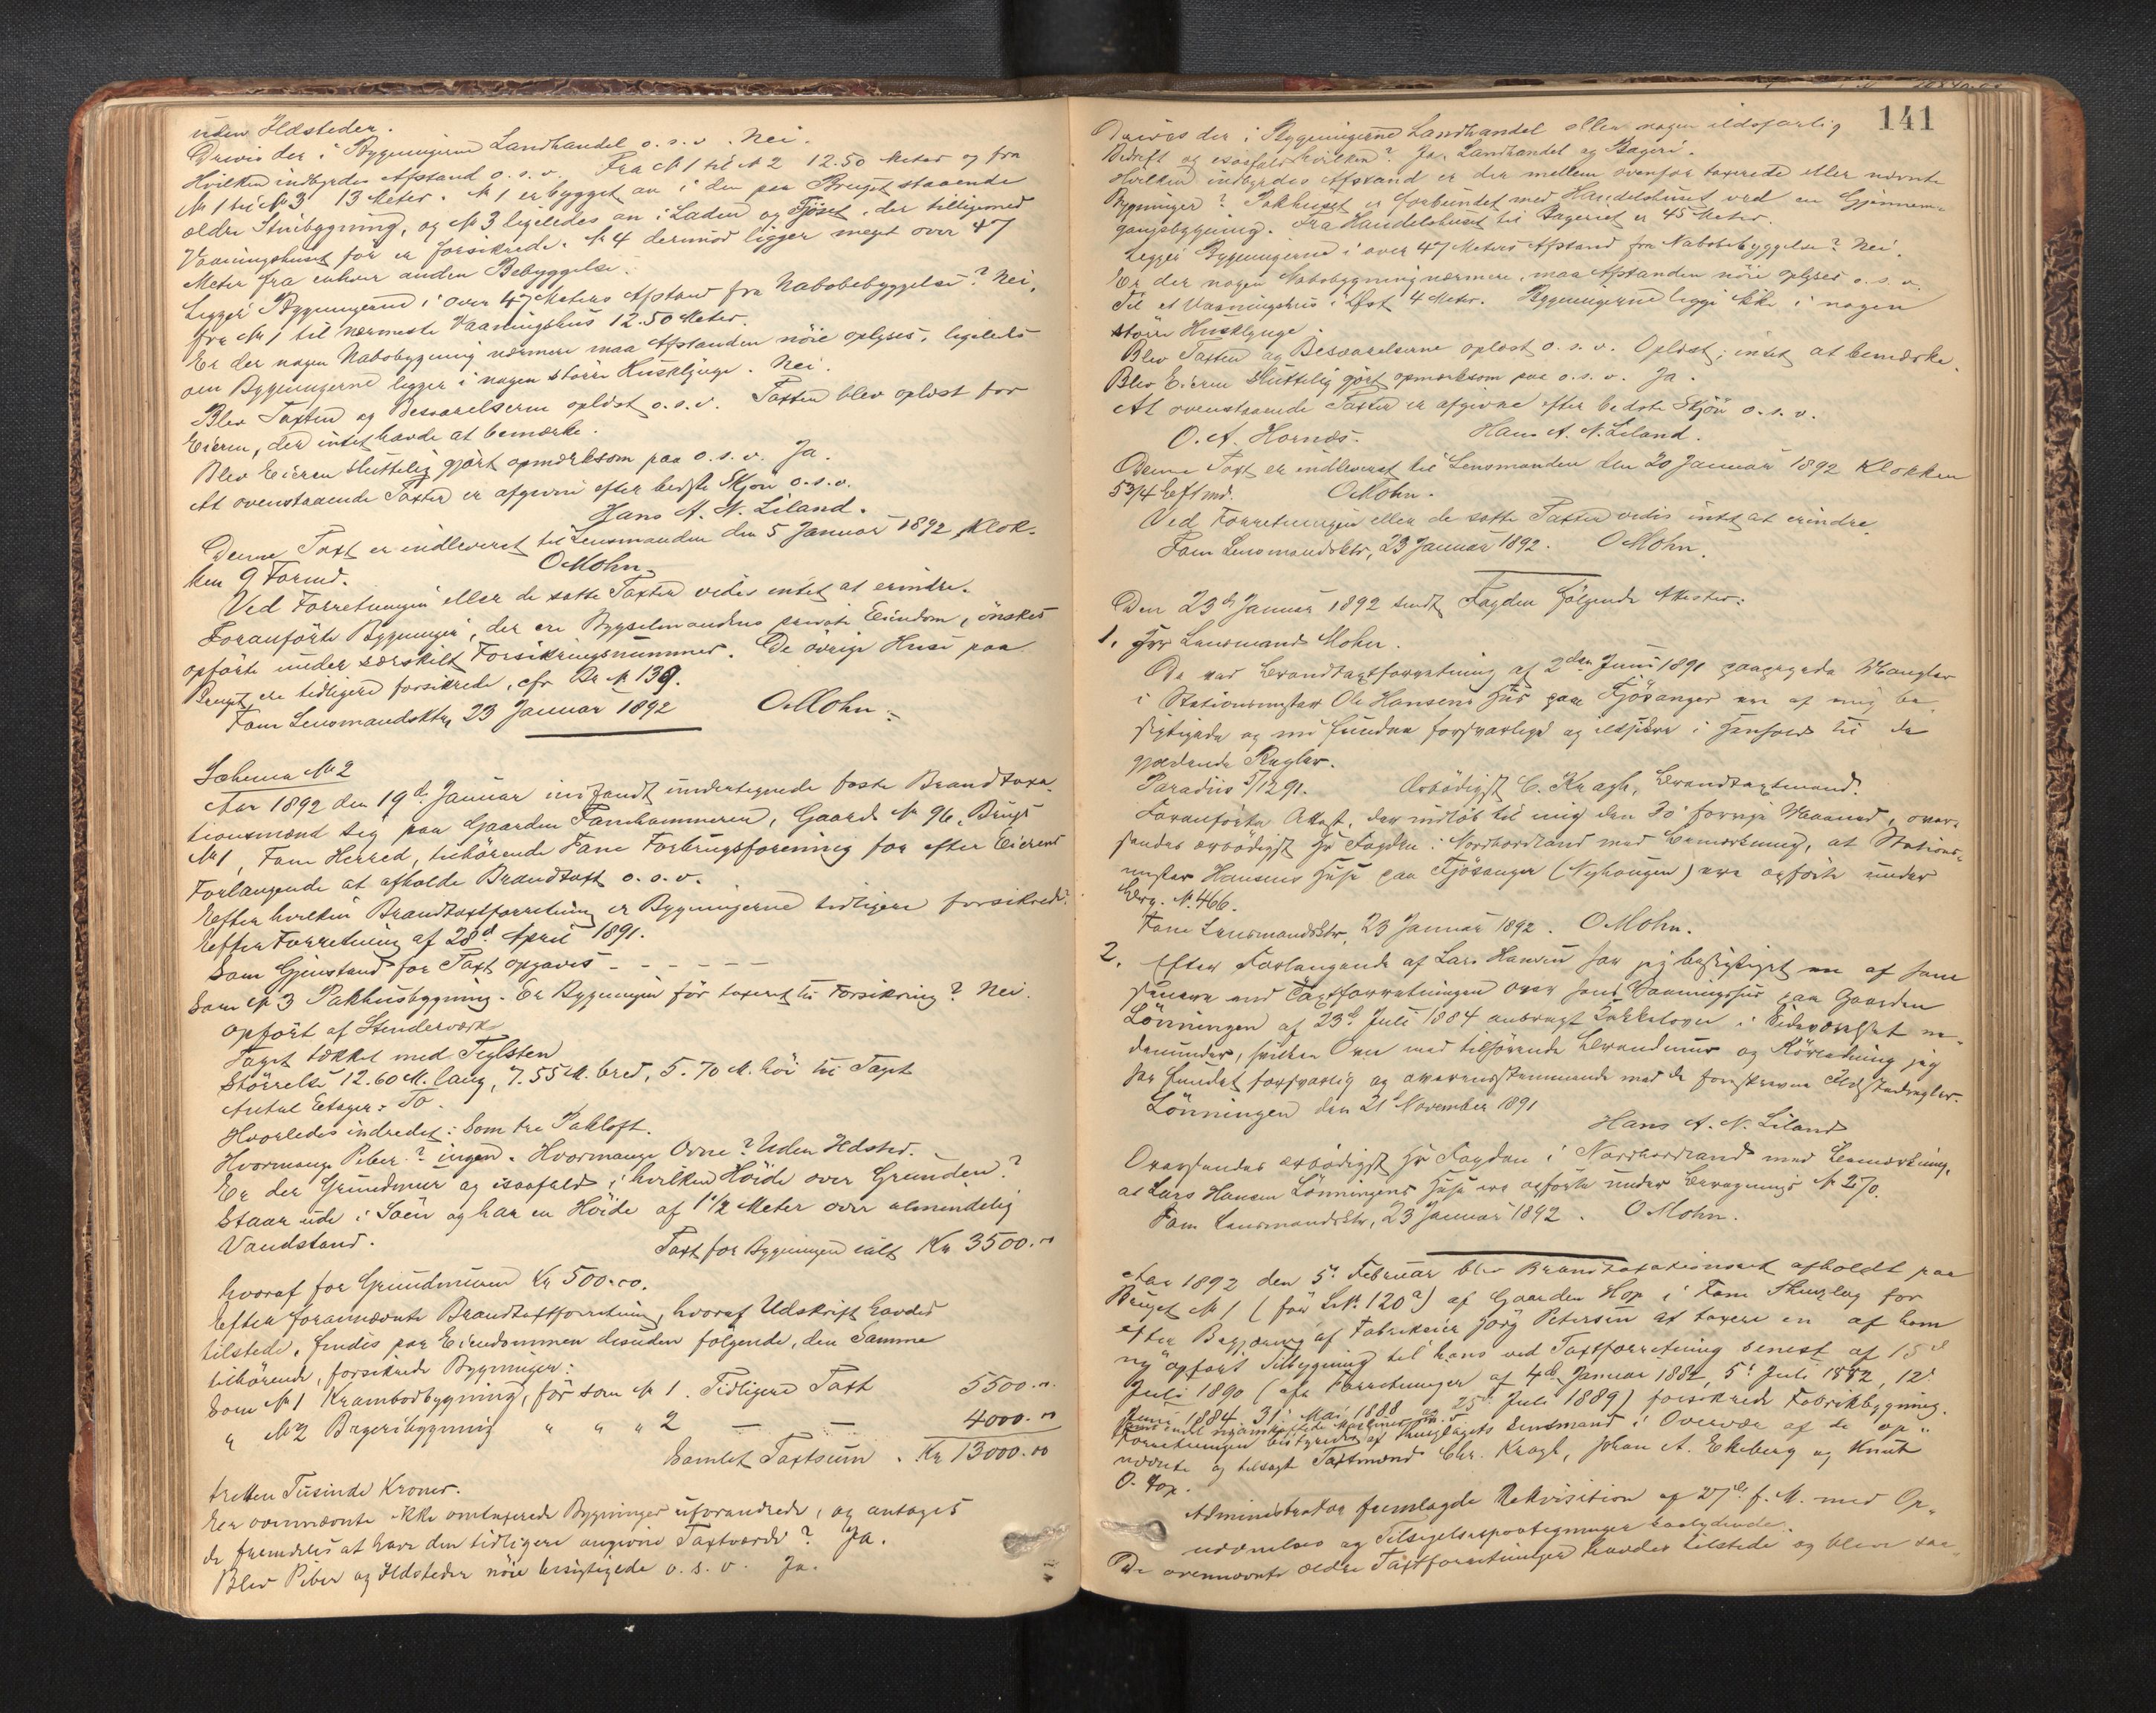 uden Ildsteder.
Drives der i Bygningerne Landhandel o. s. v. Nei.
Hvilken indbyrdes Afstand o. s. v. Fra № 1 til № 2 12.50 Meter og fra
№ 1 til № 3 13 Meter. № 1 er bygget an i den paa Bruget staaende
ældre Stuebygning, og № 3 ligeledes an i Laden og Fjöset, der tilligemed
Vaaningshuset för er forsikrede. № 4 derimod ligger meget over 47
Meter fra enhver anden Bebyggelse.
Ligger Bygningerne i over 47 Meters Afstand fra Nabobebyggelse? Nei,
fra № 1 til nærmeste Vaaningshus 12.50 Meter.
Er der nogen Nabobygning nærmere maa Afstanden nöie oplyses, ligeledes
om Bygningerne ligger i nogen större Husklynge. Nei.
Blev Taxten og Besvarelserne oplæst o. s. v. Taxten blev oplæst for
Eieren, der intet havde at bemærke.
Blev Eieren sluttelig gjört opmærksom paa o. s. v. Ja.
At ovenstaaende Taxter er afgivne efter bedste Skjön o. s. v.
Hans A. N. Liland.
Denne Taxt er indleveret til Lensmanden den 5 Januar 1892, Klok-
ken 9 Formd. O Mohn.
Ved Forretningen eller de satte Taxter vides intet at erindre.
Foranförte Bygninger, der ere Bygselmandens private Eiendom, önskes
opförte under særskilt Forsikringsnummer. De övrige Huse paa
Bruget ere tidligere forsikrede, cfr Br № 139.
Fane Lensmandsktr, 23 Januar 1892 O Mohn.
Schema № 2
Aar 1892 den 19de Januar indfandt undertegnede faste Brandtaxa-
tionsmænd sig paa Gaarden Fanehammeren, Gaards № 96, Brugs
№ 1, Fane Herred, tilhörende Fane Forbrugsforening for efter Eierens
Forlangende at afholde Brandtaxt o. s. v.
Efter hvilken Brandtaxtforretning er Bygningerne tidligere forsikrede?
Efter Forretning af 28d April 1891.
Som Gjenstand for Taxt opgaves - - - - -
Som № 3 Pakhusbygning. Er Bygningen för taxeret til Forsikring? Nei.
Opfört af Stenderværk
Taget tækket med Teglsten
Störrelse 12.60 M. lang, 7.55 M. bred, 5.70 M. höi til Taget
Antal Etager: To.
Hvorledes indredet: Som tre Pakloft.
Hvormange Piber? ingen. Hvormange Ovne? Uden Ildsted.
Er der Grundmur og isaafald i hvilken Höide over Grunden?
Staar ude i Söen og har en Höide af 1 1/2 Meter over almindelig
Vandstand.
Taxt for Bygningen ialt Kr 3500.00
hvoraf for Grundmuren Kr 500.00.
Efter forannævnte Brandtaxtforretning, hvoraf Udskrift havdes
tilstede, findes paa Eiendommen desuden fölgende, den Samme
tilhörende, forsikrede Bygninger:
Som № 1 Krambodbygning, för som № 1. Tidligere Taxt 5500.00
" № 2 Bageribygning " " " 2 — — 4000.00
Samlet Taxtsum. Kr 13000.00
tretten Tusinde Kroner.
Er ovennævnte ikke omtaxerede Bygninger uforandrede, og antages
de fremdeles at have den tidligere angivne Taxtværdi? Ja.
Blev Piber og Ildsteder nöie besigtigede o. s. v. Ja.
141
Drives der i Bygningerne Landhandel eller nogen ildsfarlig
Bedrift og isaafald hvilken? Ja, Landhandel og Bageri.
Hvilken indbyrdes Afstand er der mellem ovenfor taxerede eller nævnte
Bygninger? Pakhuset er forbundet med Handelshuset ved en Gjennem-
gangsbygning. Fra Handelshuset til Bageriet er 45 Meter.
Ligger Bygningerne i over 47 Meters Afstand fra Nabobebyggelse? Nei.
Er der nogen Nabobygning nærmere, maa Afstanden nöie oplyses o. s. v.
Til et Vaaningshus i Öst 4 Meter. Bygningerne ligge ikke i nogen
större Husklynge.
Blev Taxten og Besvarelserne oplæst o. s. v. Oplæst; intet at bemærke.
Blev Eieren sluttelig gjört opmærksom paa o. s. v. Ja.
At ovenstaaende Taxter er afgivne efter bedste Skjön o. s. v.
O. A. Hornæs. Hans A. N. Liland.
Denne Taxt er indleveret til Lensmanden den 20 Januar 1892 Klokken
5 3/4 Eftmd. O Mohn.
Ved Forretningen eller de satte Taxter vides intet at erindre.
Fane Lensmandsktr, 23 Januar 1892. O Mohn.
Den 23de Januar 1892 sendt Fogden fölgende Attester:
1. Hr Lensmand Mohn.
De ved Brandtaxtforretning af 2den Juni 1891 paapegede Mangler
i Stationsmester Ole Hansens Hus paa Fjösanger ere af mig be-
sigtigede og nu fundne forsvarlige og ildsikre i Henhold til de
gjældende Regler.
Paradiis 5/12 91. Ærbödigst C. Kragh, Brandtaxtmand.
Foranförte Attest, der indlöb til mig den 30 forrige Maaned, over-
sendes ærbödigst Hr Fogden i Nordhordland med Bemærkning, at Stations-
mester Hansens Huse paa Fjösanger (Nyhaugen) ere opförte under
Brg. № 466.
Fane Lensmandsktr, 23 Januar 1892. O Mohn.
2. Efter Forlangende af Lars Hansen har jeg besigtiget en af ham
senere end Taxtforretningen over hans Vaaningshus paa Gaarden
Lönningen af 23d Juli 1884 anbragt Kakkelovn i Sideværelset ne-
denunder, hvilken Ovn med tilhörende Brandmur og Rörledning jeg
har fundet forsvarlig og overensstemmende med de foreskrevne Ildstedregler.
Lönningen den 21d November 1891
Hans A. N. Liland
Oversendes ærbödigst Hr Fogden i Nordhordland med Bemærkning,
at Lars Hansen Lönningens Huse ere opförte under Bevognings № 270.
Fane Lensmandsktr, 23 Januar 1892. O Mohn.
Aar 1892 den 5. Februar blev Brandtaxationsret afholdt paa
Bruget № 1 (för L.№ 120a) af Gaarden Hop i Fane Thinglag for
efter Begjæring af Fabrikeier Jörg Petersen at taxere en af ham
ny opfört Tilbygning til hans ved Taxtforretning senest af 15d
Juli 1890 (cfr Forretninger af 4de Januar 1882, 5. Juli 1882, 12.
Juni 1884, 31. Mai 1888 og 25d Juli 1889) forsikrede Fabrikbygning.
Forretningen bestyredes af Thinglagets Lensmand i Overvær af de op-
nævnte og tilsagte Taxtmænd Chr. Kragh, Johan A. Ekeberg og Knut
O. Hop.
Administrator fremlagde Rekvisition af 27de f. M. med Op-
nævnelses og Tilsigelsespaategninger
De ovennævnte ældre Taxtforretninger havdes tilstede og blev